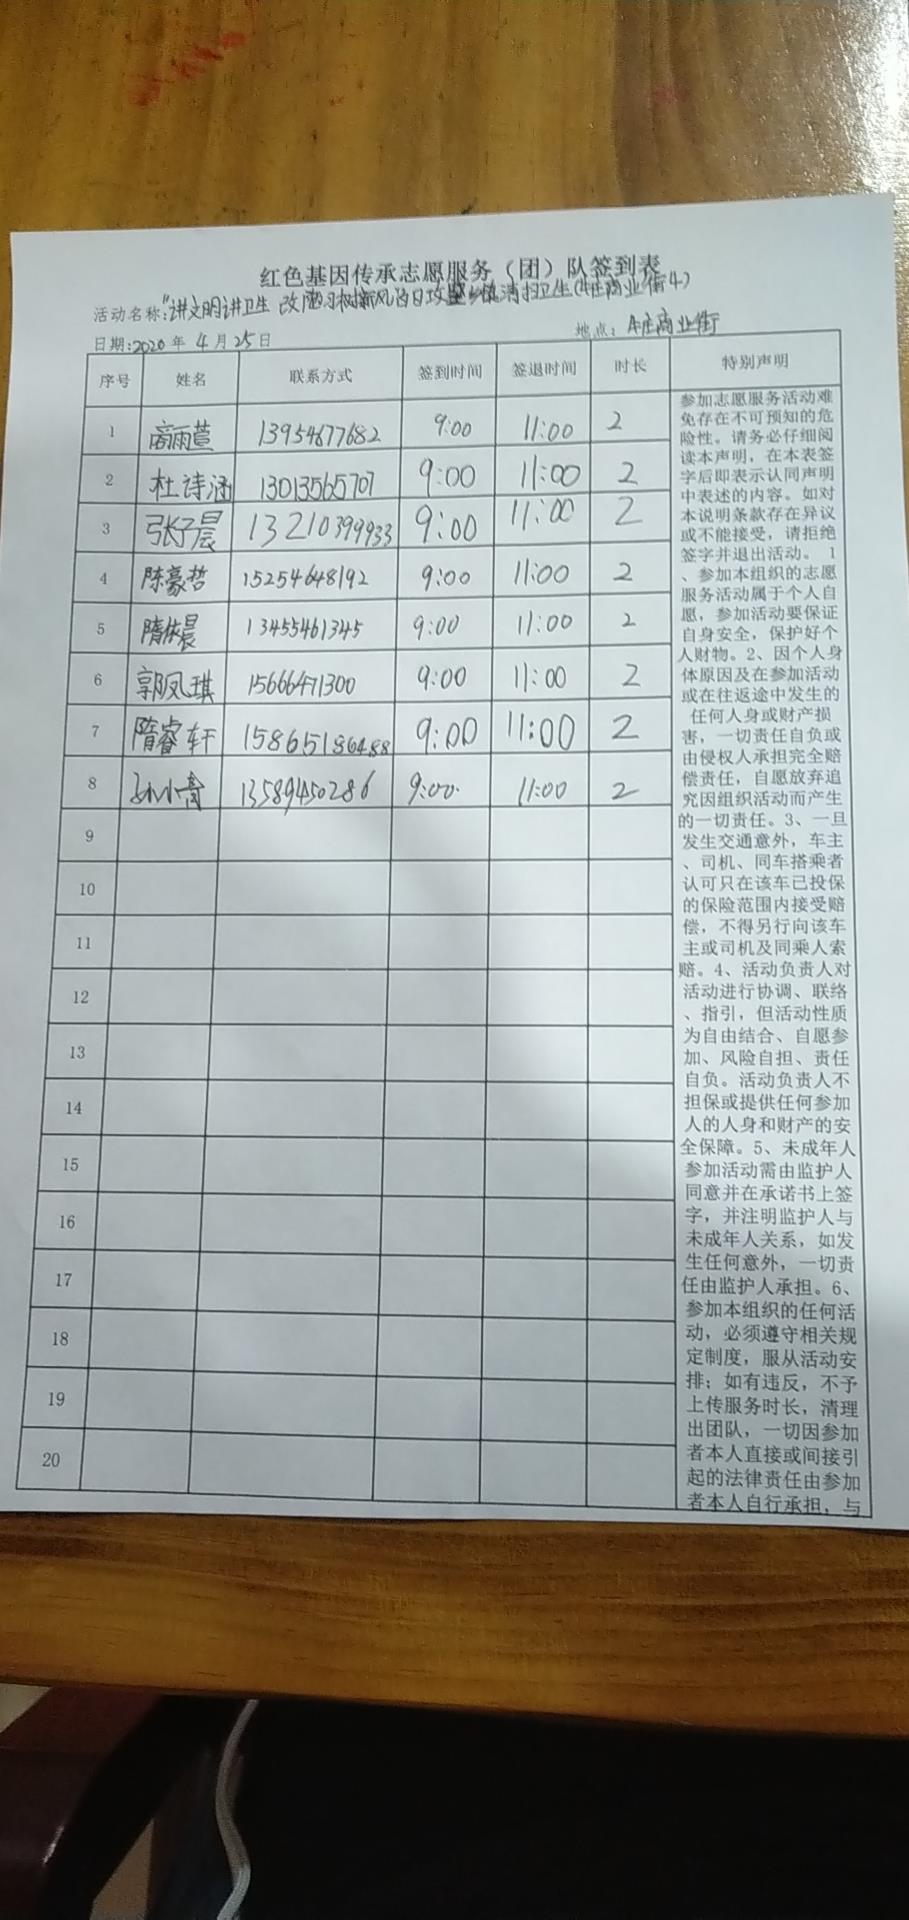 红色基因传承志愿服务(团)队签到表
活动名称:"讲文明讲卫生 改陋习树新风百日攻坚"乡镇清扫卫生(牛庄商业街4)
日期:2020年4月25日 地点:牛庄商业街
序号 姓名 联系方式 签到时间 签退时间 时长 特别声明
1 商雨萱 13954677682 9:00 11:00 2
2 杜诗涵 13013565707 9:00 11:00 2
3 张子晨 13210399933 9:00 11:00 2
4 陈豪哲 15254648192 9:00 11:00 2
5 隋依晨 13455461345 9:00 11:00 2
6 郭凤琪 15666471300 9:00 11:00 2
7 隋睿轩 15865186488 9:00 11:00 2
8 13589450286 9:00 11:00 2
9
10
11
12
13
14
15
16
17
18
19
20
参加志愿服务活动难
免存在不可预知的危
险性。请务必仔细阅
读本声明,在本表签
字后即表示认同声明
中表述的内容。如对
本说明条款存在异议
或不能接受,请拒绝
签字并退出活动。1
、参加本组织的志愿
服务活动属于个人自
愿,参加活动要保证
自身安全,保护好个
人财物。2、因个人身
体原因及在参加活动
或在往返途中发生的
任何人身或财产损
害,一切责任自负或
由侵权人承担完全赔
偿责任,自愿放弃追
究因组织活动而产生
的一切责任。3、一旦
发生交通意外,车主
、司机、同车搭乘者
认可只在该车已投保
的保险范围内接受赔
偿,不得另行向该车
主或司机及同乘人索
赔。4、活动负责人对
活动进行协调、联络
、指引,但活动性质
为自由结合、自愿参
加、风险自担、责任
自负。活动负责人不
担保或提供任何参加
人的人身和财产的安
全保障。5、未成年人
参加活动需由监护人
同意并在承诺书上签
字,并注明监护人与
未成年人关系,如发
生任何意外,一切责
任由监护人承担。6、
参加本组织的任何活
动,必须遵守相关规
定制度,服从活动安
排;如有违反,不予
上传服务时长,清理
出团队,一切因参加
者本人直接或间接引
起的法律责任由参加
者本人自行承担,与